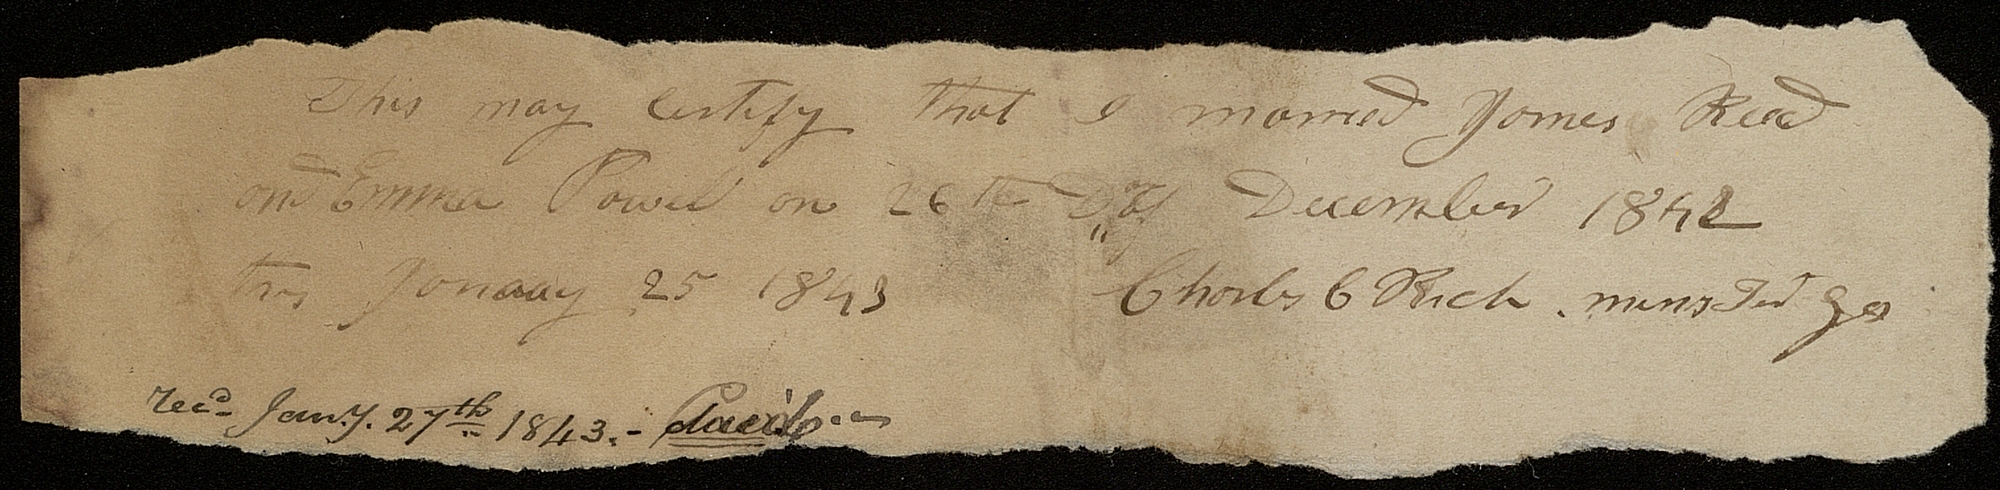 This may certify that I married James Read
and Emma Powel on 26th Day December 1842
this January 25 1843 Charles C Rich.
recd Jany. 27th 1843.-